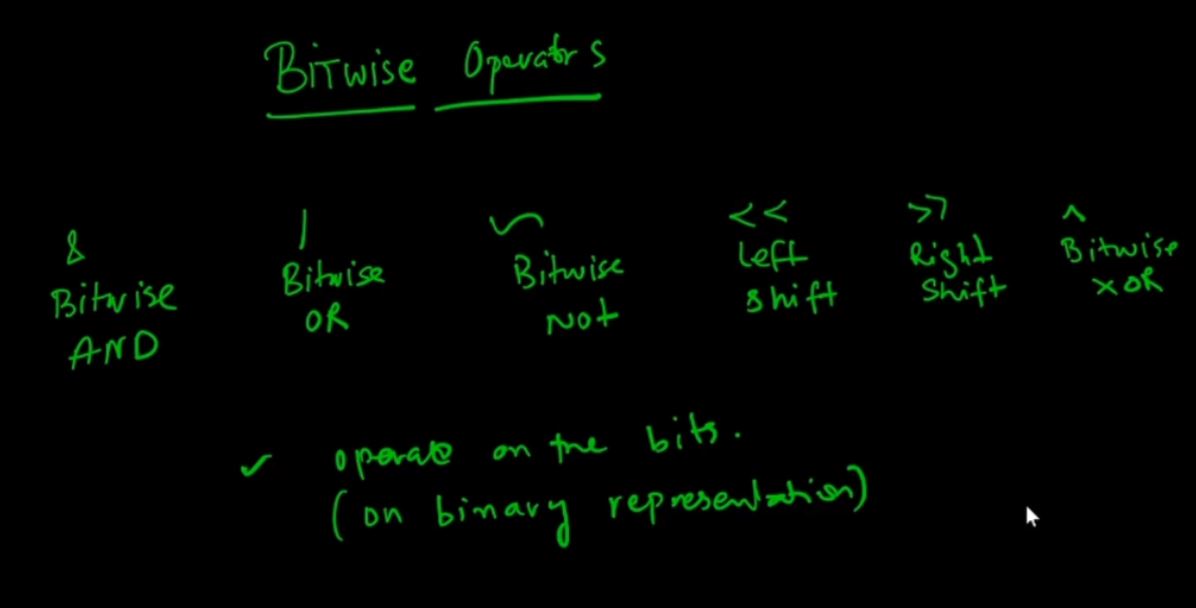 BiTwise Operators
& | ~ << >> ^
Bitwise AND
Bitwise OR
Bitwise Not
Left shift
Right Shift
Bitwise XOR
✓ operate on the bits.
(on binary representation)